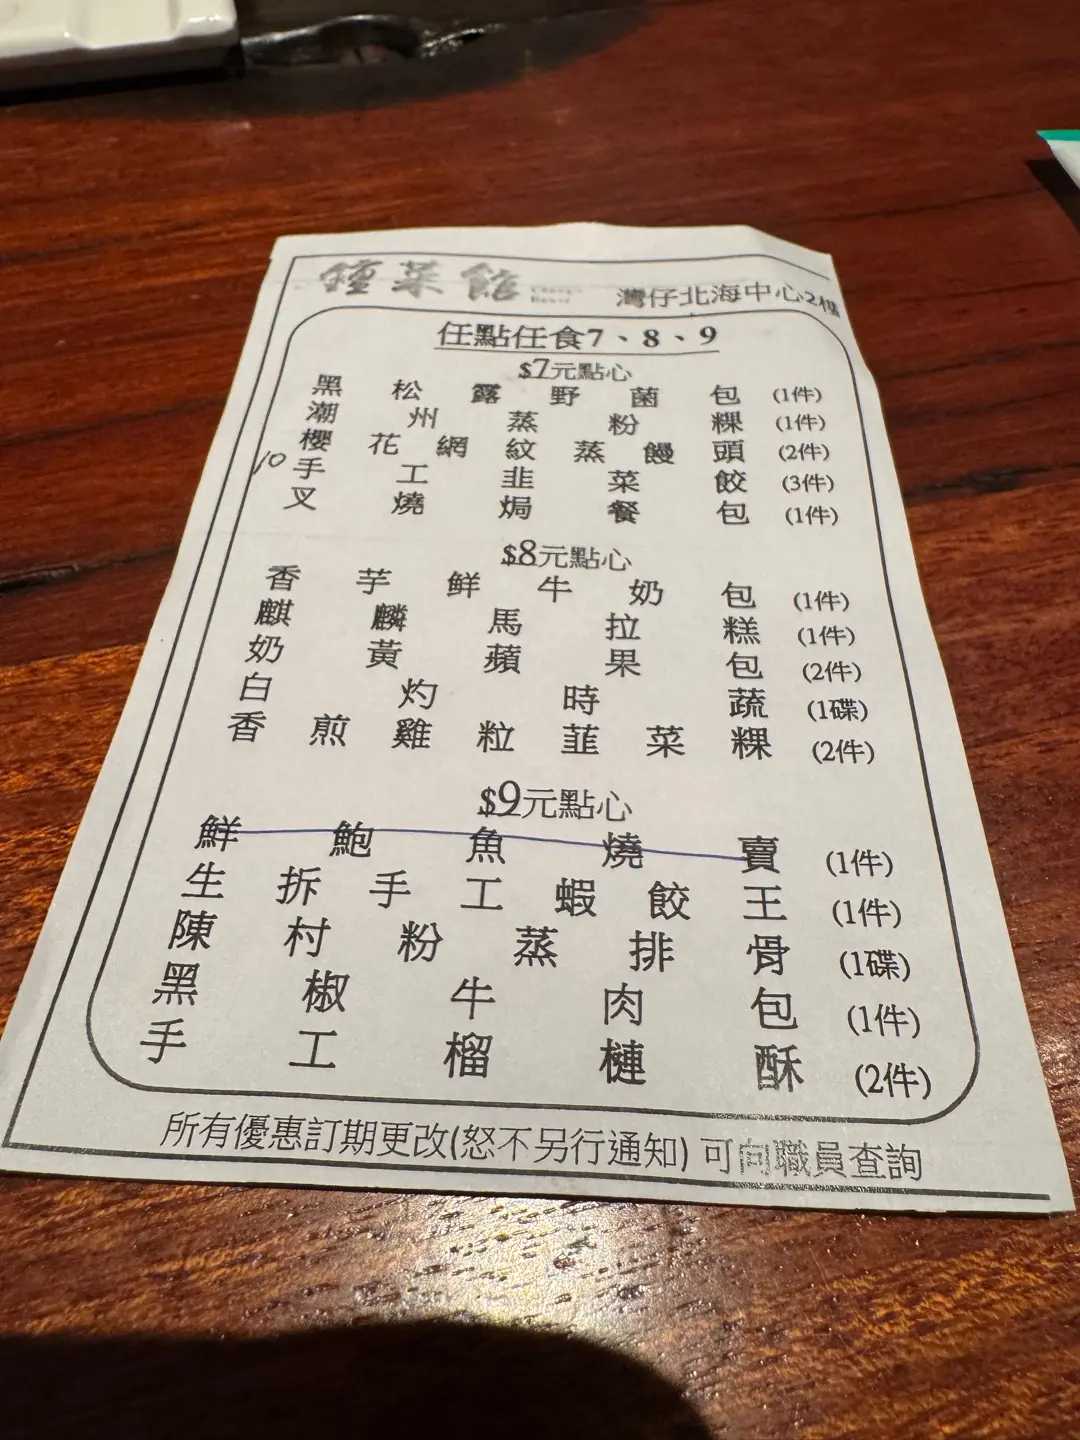 鍾菜館
灣仔北海中心2樓
任點任食7、8、9
$7元點心
黑松露野菌包 (1件)
潮州蒸粉粿 (1件)
櫻花網紋蒸饅頭 (2件)
10 手工韭菜餃 (3件)
叉燒焗餐包 (1件)
$8元點心
香芋鮮牛奶包 (1件)
麒麟馬拉糕 (1件)
奶黃蘋果包 (2件)
白灼時蔬 (1碟)
香煎雞粒韮菜粿 (2件)
$9元點心
鮮鮑魚燒賣 (1件)
生拆手工蝦餃王 (1件)
陳村粉蒸排骨 (1碟)
黑椒牛肉包 (1件)
手工榴槤酥 (2件)
所有優惠訂期更改(怒不另行通知) 可向職員查詢